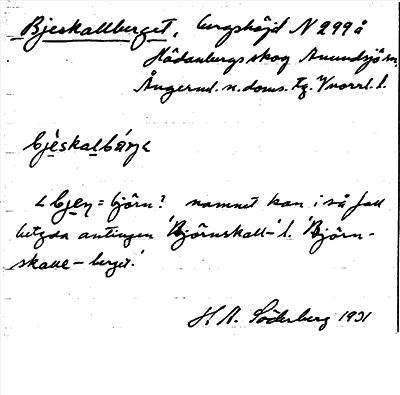 Bjeskallberget, bergshöjd N 299 å
Hädanbergs skog Anundsjö sn.
Ångerml. n. doms. tg. Vnorrl. l.
bjèskalbárjɛ
< bjen = björn? namnet kan i så fall
betyda antingen 'Björnskall-' l. 'Björn-
skalle-berget.'
H A. Söderberg 1931